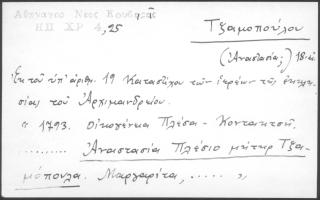 Αθηναγο Νεος Κουβαρᾶς
ΗΠ ΧΡ 4, 25
Τζαμοπούλου
(Ἀναστασία;) 18-αι.
Ἐκ τοῦ ὑπ' ἀριθμ. 19 Καταστίχου τῶν ἱερέων τῆς ἐκκλη-
σίας τοῦ Ἀρχιμανδρείου.
1793. Οἰκογένεια Πλέσα - Κοντακτσῆ
......... Ἀναστασία Πλέσιο μήτηρ Τζα-
μόπουλα. Μαργαρίτα, ..... "